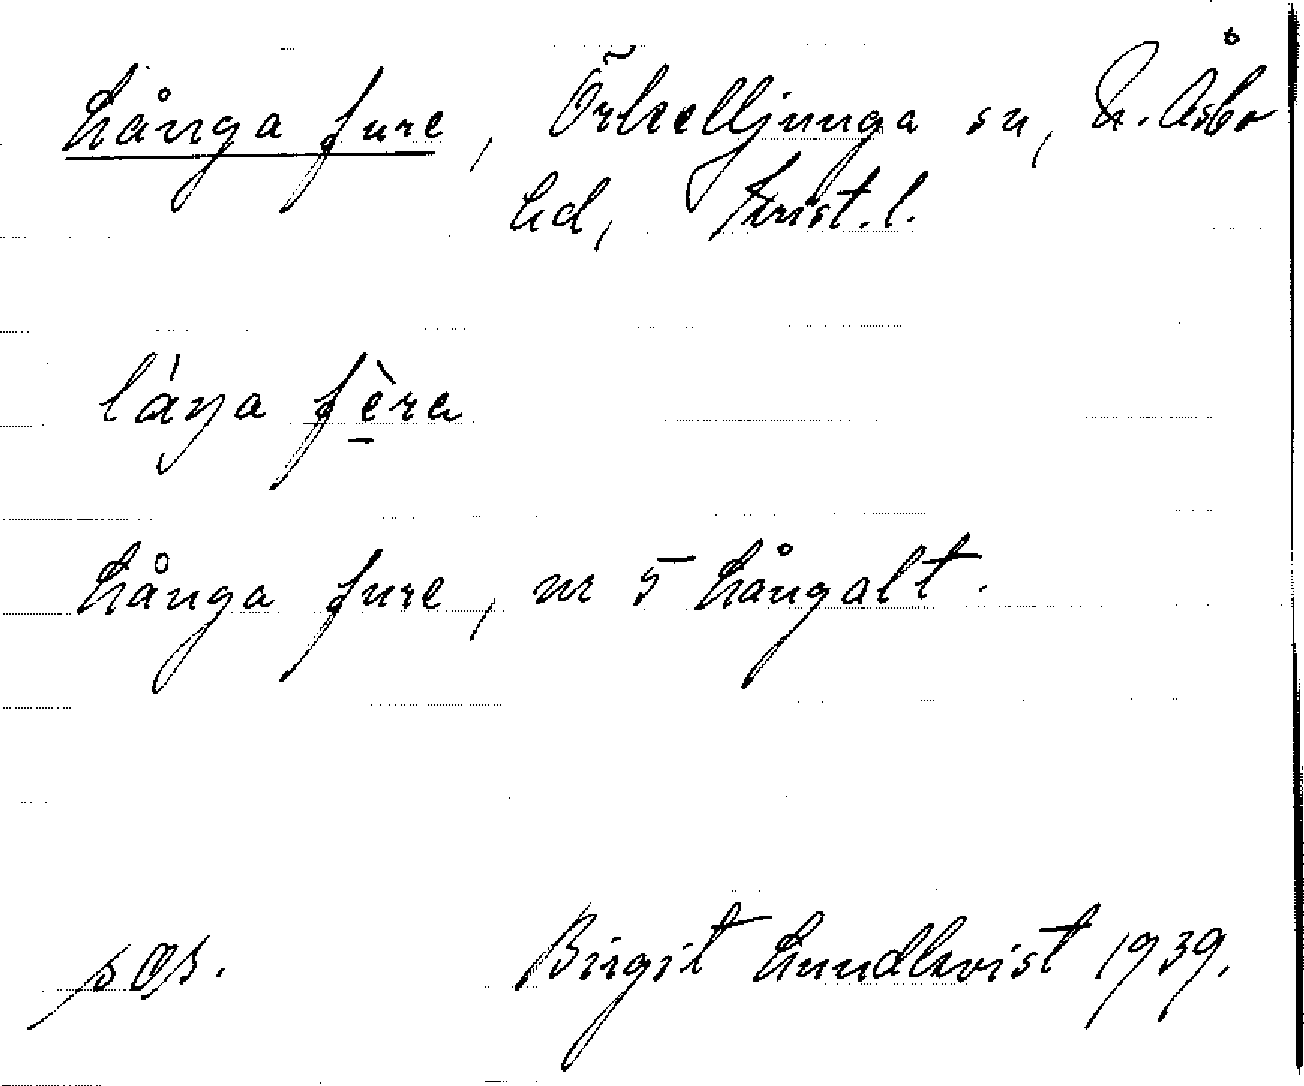 Långa fure, Örkelljunga sn, N. Åsbo
hd, Krist. l.
láŋa fèra
Långa fure, m 5 Långalt.
Birgit Lundkvist 1939.